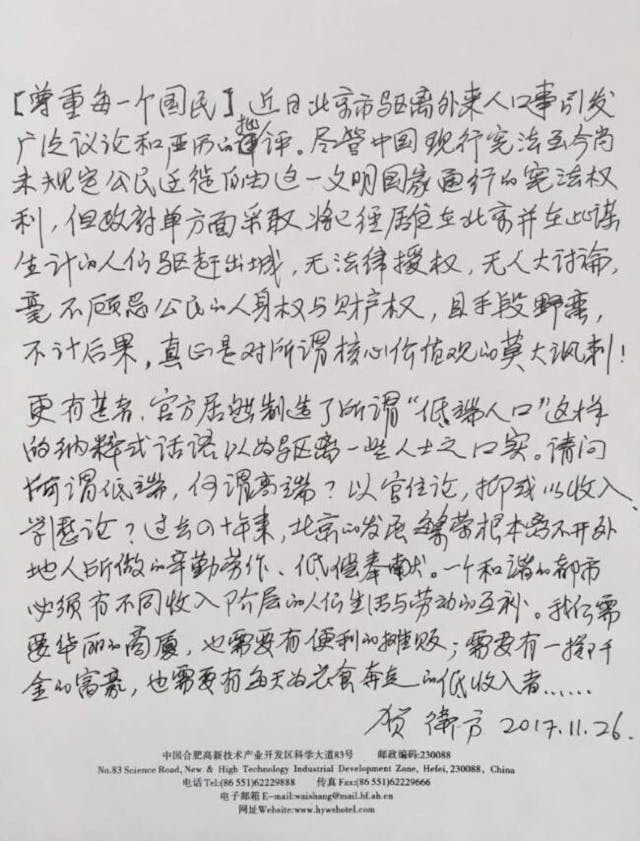 [尊重每一个国民] 近日北京市驱离外来人口事引发
广泛议论和严厉的批评。尽管中国现行宪法至今尚
未规定公民迁徙自由这一文明国家通行的宪法权
利，但政府单方面采取将已经居住在北京并在此谋
生计的人们驱赶出城，无法律授权，无人大讨论，
毫不顾忌公民的人身权与财产权，且手段野蛮，
不计后果，真正是对所谓核心价值观的莫大讽刺！
更有甚者，官方居然制造了所谓“低端人口”这样
的纳粹式话语以为驱离一些人士之口实。请问
何谓低端，何谓高端？以官位论，抑或以收入、
学历论？过去四十年来，北京的发展繁荣根本离不开外
地人所做的辛勤劳作、低偿奉献。一个和谐的都市
必须有不同收入阶层的人们生活与劳动的互补。我们需
要华丽的商厦，也需要有便利的摊贩；需要有一掷千
金的富豪，也需要有每天为衣食奔走的低收入者……
贺卫方 2017.11.26.
中国合肥高新技术产业开发区科学大道83号 邮政编码:230088
No.83 Science Road, New & High Technology Industrial Development Zone, Hefei,230088, China
电话Tel:(86 551)62229888 传真Fax:(86 551)62229666
电子邮箱E-mail:waishang@mail.hf.ah.cn
网址Website:www.hywshotel.com